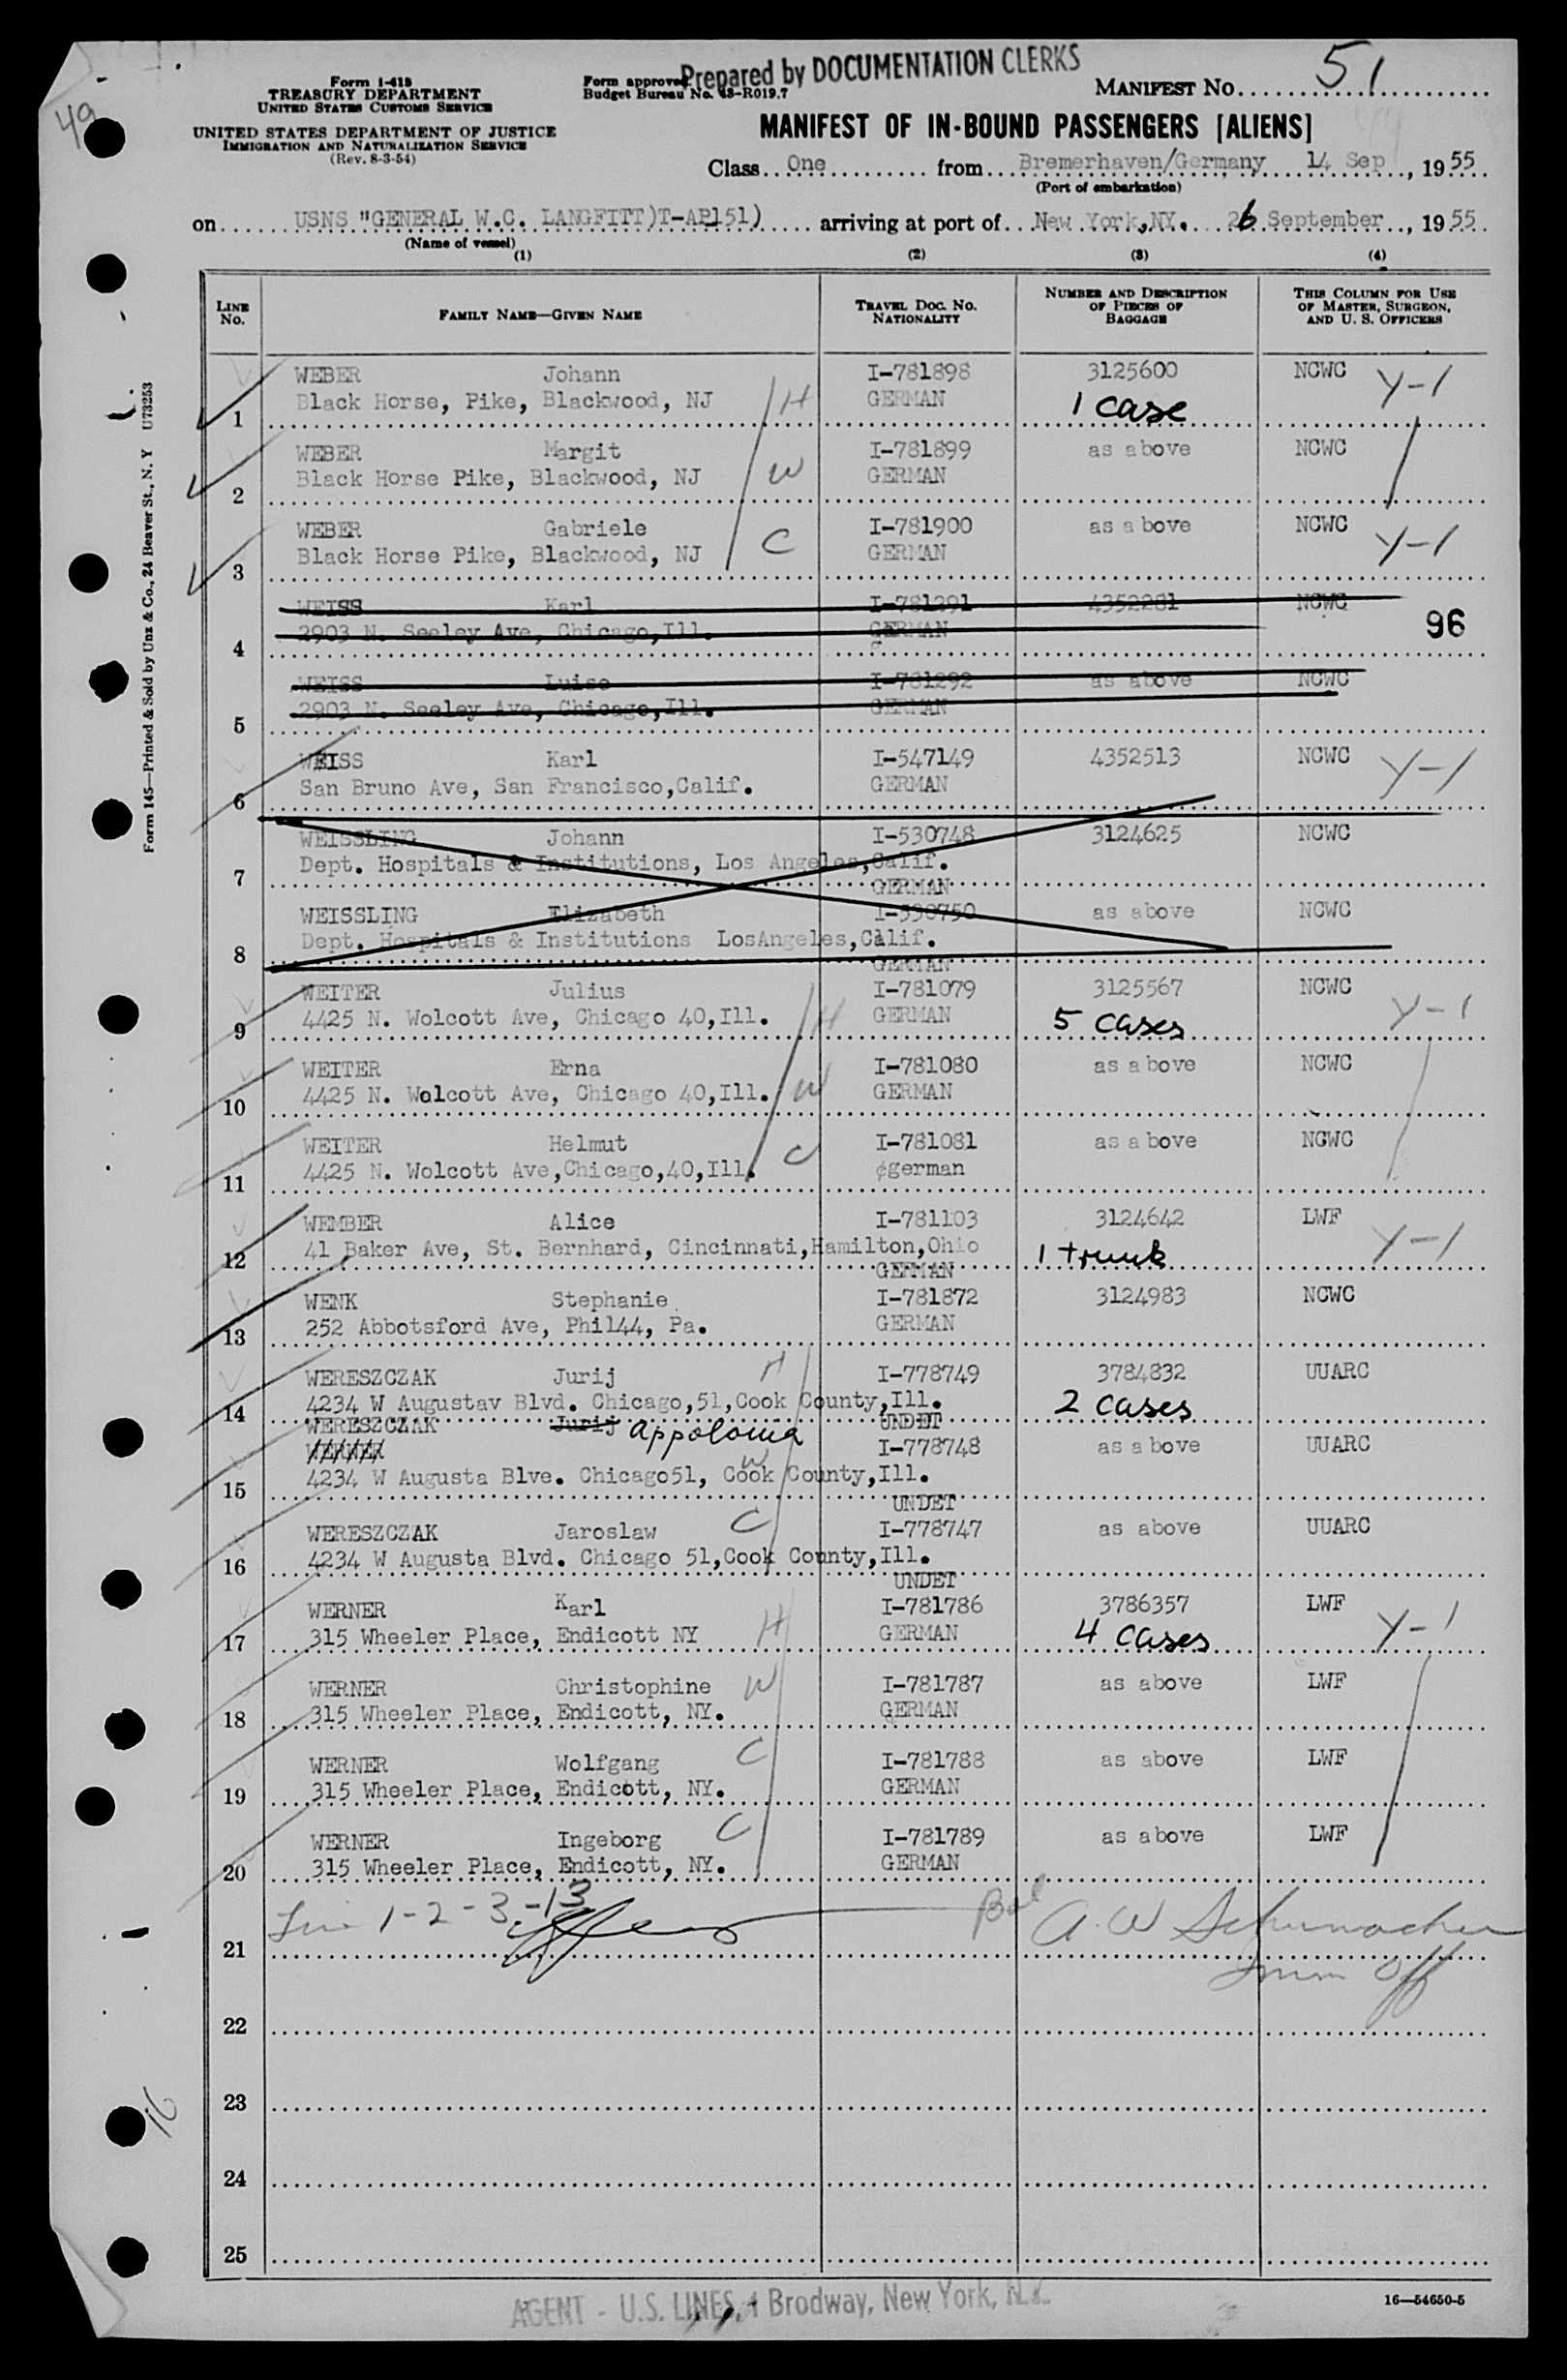 49
Form I-418
TREASURY DEPARTMENT
UNITED STATES CUSTOMS SERVICE
UNITED STATES DEPARTMENT OF JUSTICE
IMMIGRATION AND NATURALIZATION SERVICE
(Rev. 8-3-54)
Form approved
Budget Bureau No. 43-R019.7
Prepared by DOCUMENTATION CLERKS
MANIFEST No. 51
MANIFEST OF IN-BOUND PASSENGERS [ALIENS]
Class One from Bremerhaven/Germany 14 Sep, 1955
(Port of embarkation)
on USNS "GENERAL W.C. LANGFITT)T-AP151) arriving at port of New York,NY. 26 September, 1955
(Name of vessel)
(1) (2) (3) (4)
LINE No. FAMILY NAME—GIVEN NAME TRAVEL DOC. No. NATIONALITY NUMBER AND DESCRIPTION OF PIECES OF BAGGAGE THIS COLUMN FOR USE OF MASTER, SURGEON, AND U. S. OFFICERS
WEBER Johann I-781898 3125600 NCWC Y-1
1 Black Horse, Pike, Blackwood, NJ H GERMAN 1 case
WEBER Margit I-781899 as above NCWC
2 Black Horse Pike, Blackwood, NJ W GERMAN
WEBER Gabriele I-781900 as above NCWC Y-1
3 Black Horse Pike, Blackwood, NJ C GERMAN
WEISS Karl I-781291 4352281 NCWC
4 2903 N. Seeley Ave, Chicago,Ill. GERMAN 96
WEISS Luise I-781292 as above NCWC
5 2903 N. Seeley Ave, Chicago,Ill. GERMAN
WEISS Karl I-547149 4352513 NCWC Y-1
6 San Bruno Ave, San Francisco,Calif. GERMAN
WEISSLING Johann I-530748 3124625 NCWC
7 Dept. Hospitals & Institutions, Los Angeles,Calif.
GERMAN
WEISSLING Elizabeth I-530750 as above NCWC
8 Dept. Hospitals & Institutions LosAngeles,Calif.
GERMAN
WEITER Julius I-781079 3125567 NCWC Y-1
9 4425 N. Wolcott Ave, Chicago 40,Ill. H GERMAN 5 cases
WEITER Erna I-781080 as above NCWC
10 4425 N. Wolcott Ave, Chicago 40,Ill. W GERMAN
WEITER Helmut I-781081 as above NCWC
11 4425 N. Wolcott Ave,Chicago,40,Ill. C german
WEMBER Alice I-781103 3124642 LWF Y-1
12 41 Baker Ave, St. Bernhard, Cincinnati,Hamilton,Ohio 1 trunk
GERMAN
WENK Stephanie I-781872 3124983 NCWC
13 252 Abbotsford Ave, Phil44, Pa. GERMAN
WERESZCZAK Jurij H I-778749 3784832 UUARC
14 4234 W Augustav Blvd. Chicago,51,Cook County,Ill. 2 cases
WERESZCZAK Jurij Appolonia UNDET
WERNER I-778748 as above UUARC
15 4234 W Augusta Blve. Chicago51, Cook County,Ill. W
UNDET
WERESZCZAK Jaroslaw C I-778747 as above UUARC
16 4234 W Augusta Blvd. Chicago 51,Cook County,Ill.
UNDET
WERNER Karl I-781786 3786357 LWF Y-1
17 315 Wheeler Place, Endicott NY H GERMAN 4 cases
WERNER Christophine W I-781787 as above LWF
18 315 Wheeler Place, Endicott, NY. GERMAN
WERNER Wolfgang C I-781788 as above LWF
19 315 Wheeler Place, Endicott, NY. GERMAN
WERNER Ingeborg C I-781789 as above LWF
20 315 Wheeler Place, Endicott, NY. GERMAN
1-2-3-13 Bal A. W Schumacher
21 Imm Off
22
23
24
25
16
Form 145—Printed & Sold by Unz & Co., 24 Beaver St., N. Y U73253
AGENT - U.S. LINES, 1 Brodway, New York, N.Y.
16—54650-5